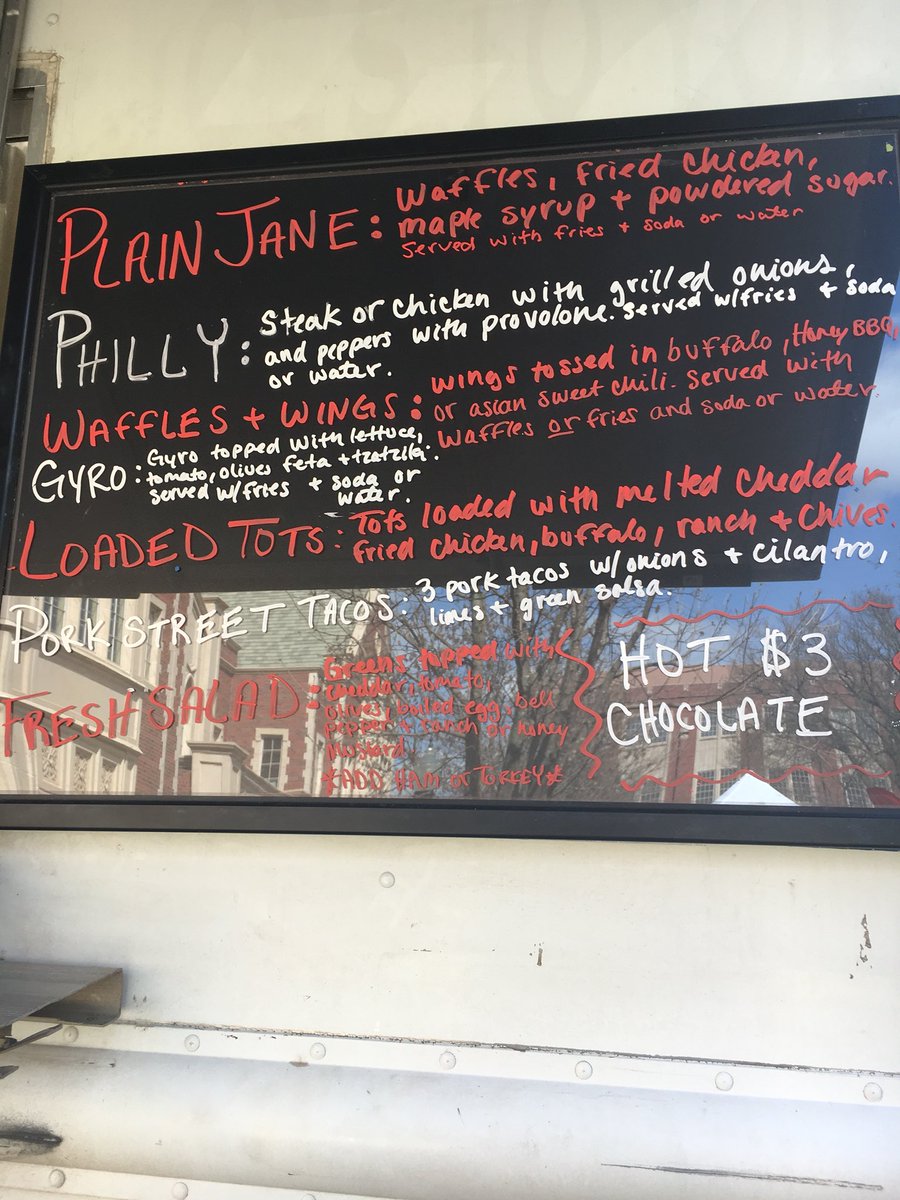 PLAIN JANE: Waffles, fried chicken,
maple syrup + powdered sugar.
Served with fries + soda or water
PHILLY: Steak or chicken with grilled onions,
and peppers with provolone. Served w/fries + soda
or water.
WAFFLES + WINGS: wings tossed in buffalo, Honey BBQ,
or asian sweet chili. Served with
Waffles or fries and soda or water.
GYRO: Gyro topped with lettuce,
tomato, olives feta + tzatziki.
served w/fries + soda or
water.
LOADED TOTS: Tots loaded with melted cheddar
fried chicken, buffalo, ranch + chives.
PORK STREET TACOS: 3 pork tacos w/onions + cilantro,
limes + green salsa.
FRESH SALAD: Greens topped with
cheddar, tomato,
olives, boiled egg, bell
pepper + ranch or honey
mustard.
*ADD HAM or TURKEY*
HOT $3
CHOCOLATE